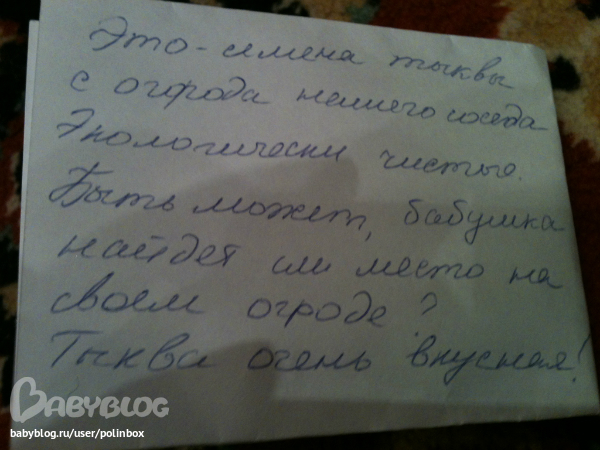 Это - семена тыквы
с огорода нашего соседа
Экологически чистые.
Быть может, бабушка
найдет им место на
своем огроде?
Тыква очень вкусная!
BABYBLOG
babyblog.ru/user/polinbox